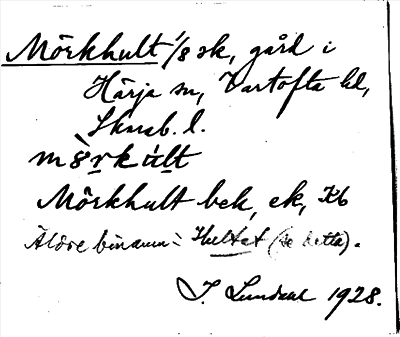 Mörkhult 1/8 sk, gård i
Härja sn, Vartofta hd,
Skarab. l.
Mörkhult bek, ek, Kb
Äldre binamn: Hultet (se detta).
J. Lundahl 1928.